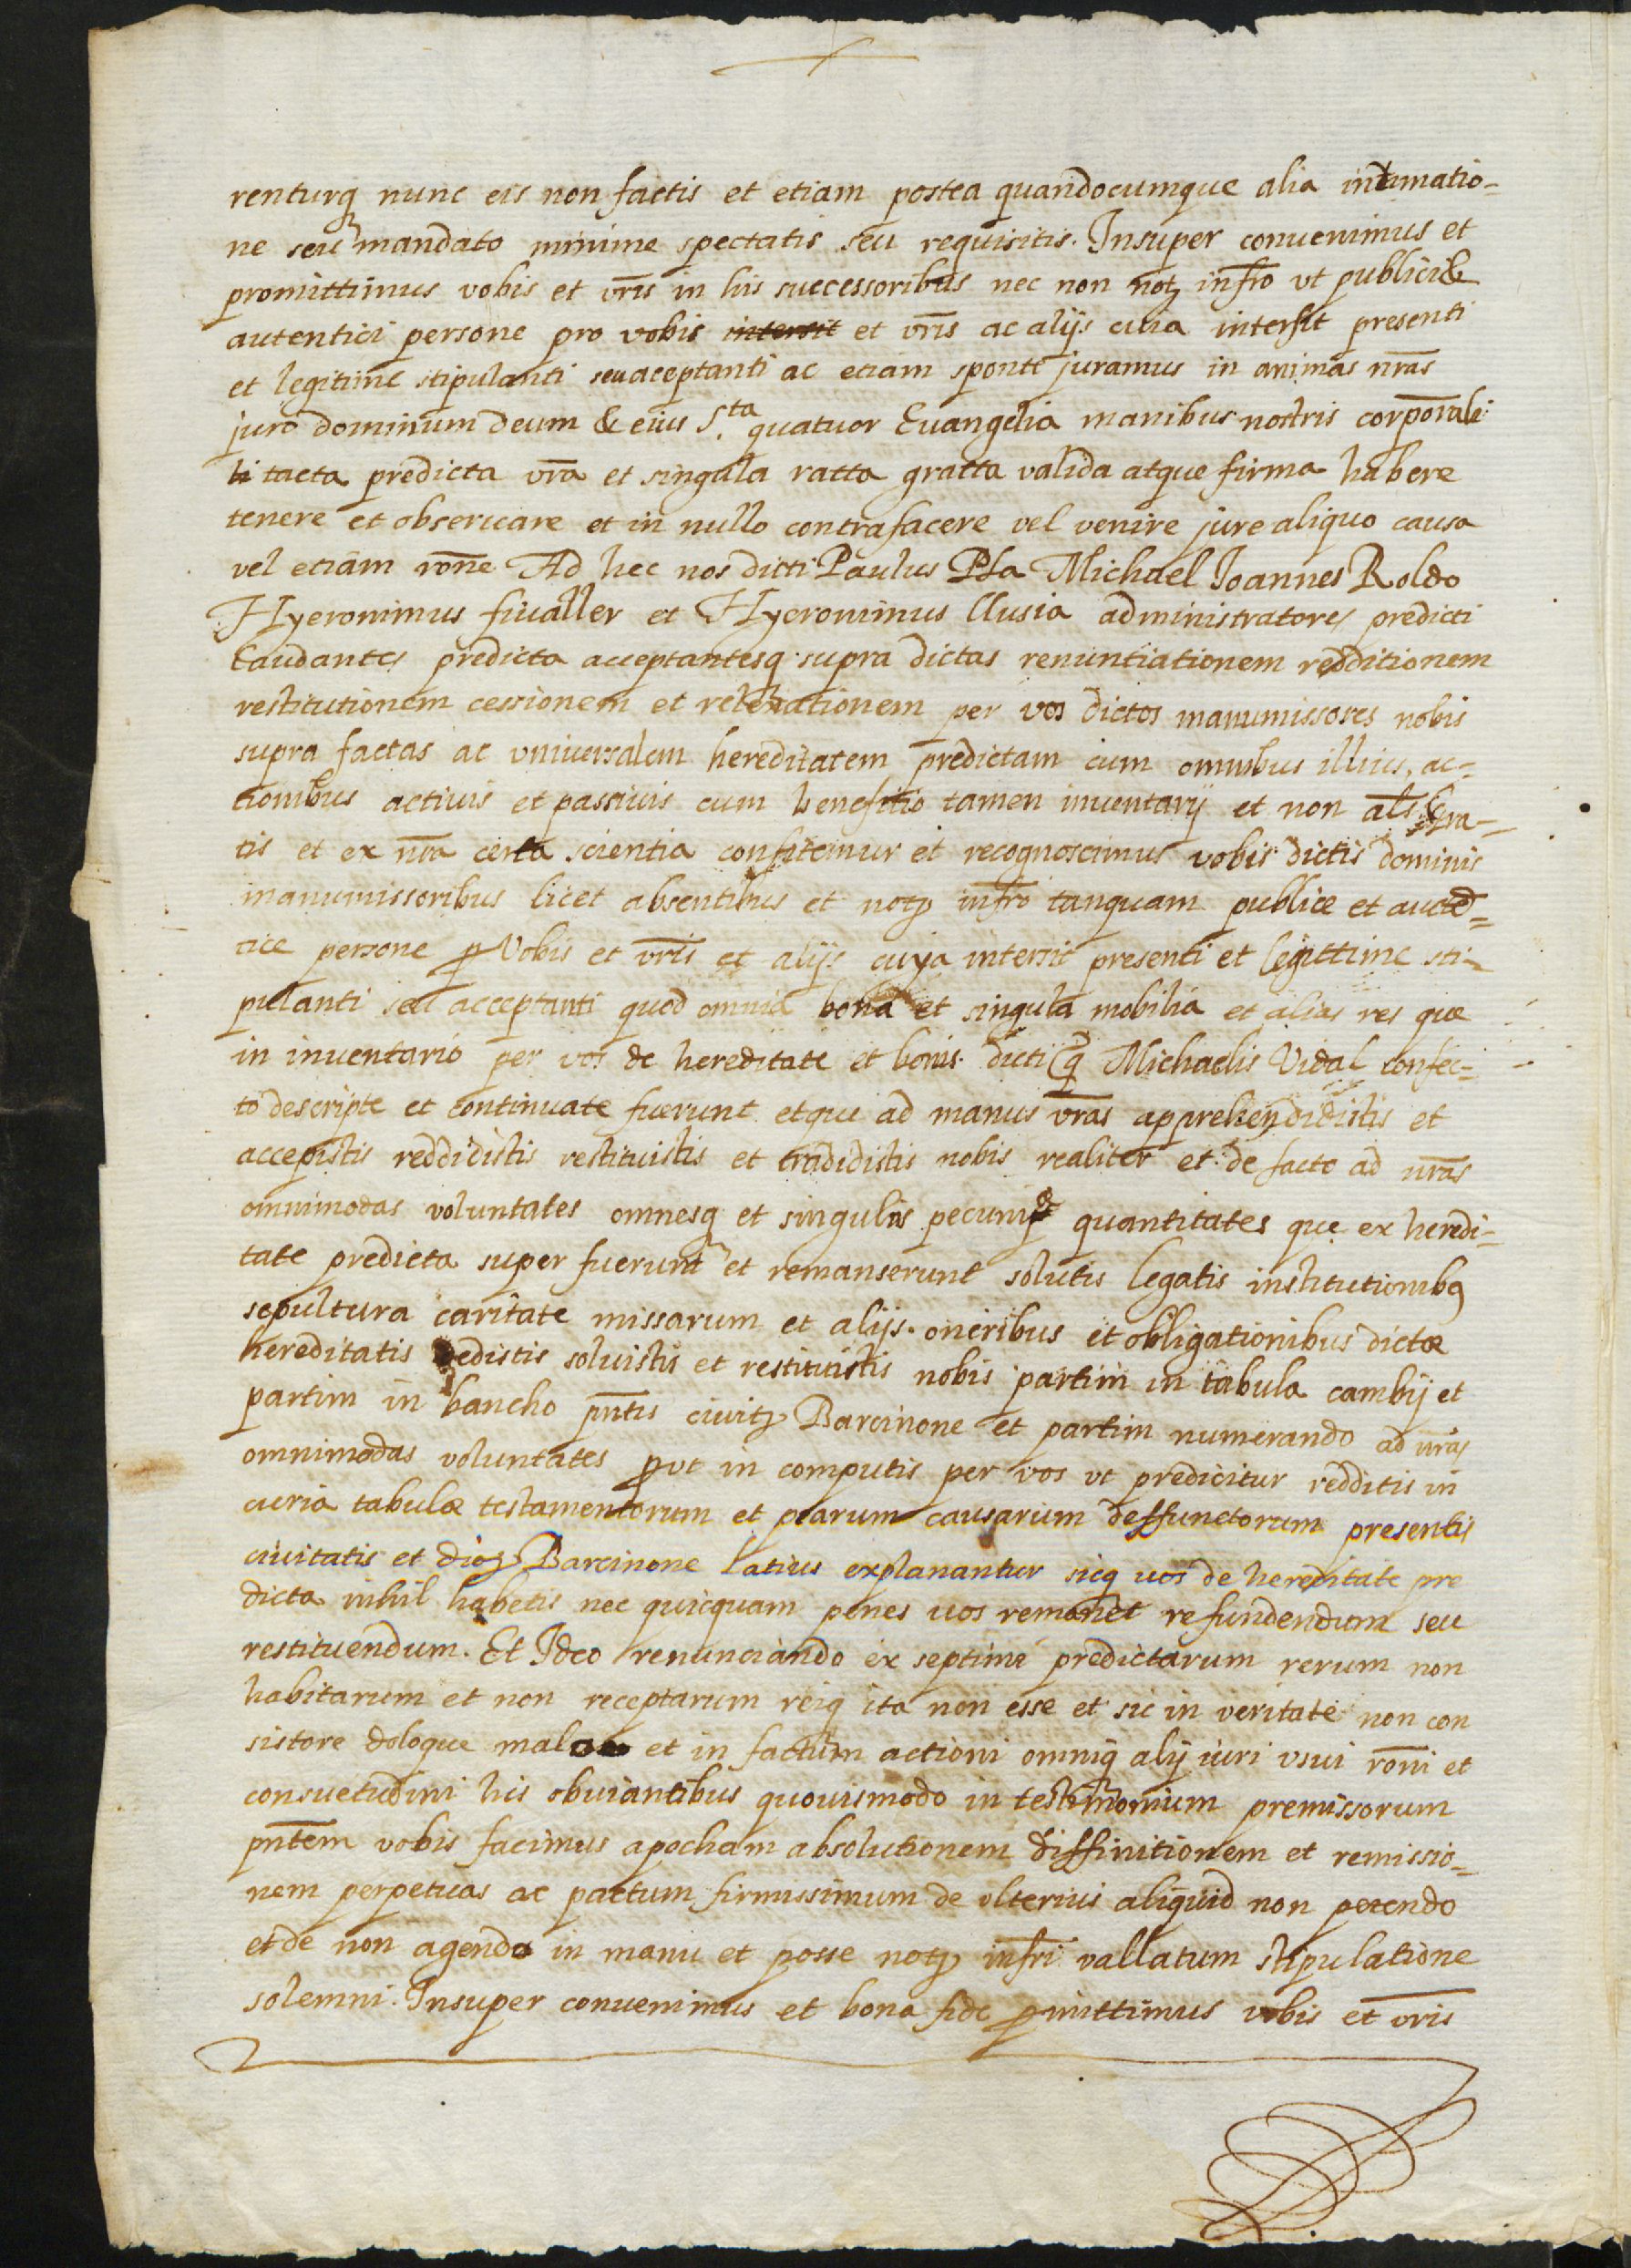 renturq nunc eis non factis et etiam postea quandocumque alia intimatio-
ne seu mandato minime spectatis seu requisitis. Insuper convenimus et
promittimus vobis et vr̄is in his successoribus nec non notꝫ infr̄o vt publici &
autentici persone pro vobis intersit et vr̄is ac alijs cuia intersit presenti
et legitime stipulanti seu aceptanti ac etiam sponte juramus in animas nr̄as
juro dominum deum & eius S.ta quatuor Euangelia manibus nostris corporali
ti tacta predicta vr̄a et singula ratta gratta valida atque firma habere
tenere et obseruare et in nullo contrafacere vel venire jure aliquo causa
vel etiam rōne Ad hec nos dicti Paulus Pla Michael Joannes Roldo
Hyeronimus fiualler et Hyeronimus llusia administratores predicti
laudantes predicta acceptantesq supra dictas renuntiationem redditionem
restitutionem cessionem et relaxationem per vos dictos manumissores nobis
supra factas ac vniuersalem hereditatem predictam cum omnibus illius, ac-
tionibus actiuis et passiuis cum benefitio tamen inuentarij et non als̄ Gra-
tis et ex nr̄a certa scientia confitemur et recognoscimus vobis dictis dominis
manumissoribus licet absentibus et notꝫ infr̄o tanquam publice et aucten-
tice persone ꝓ Vobis et vr̄is et alijs cuya intersit presenti et legittime sti-
pulanti seu acceptanti quod omnia bona et singula mobilia et alias res que
in inuentario per vos de hereditate et bonis dicti q̄ Michaelis Vidal confec-
to descripte et continuate fuerunt etque ad manus vr̄as apprehendidistis et
accepistis reddidistis restituistis et tradidistis nobis realiter et de facto ad nr̄as
omnimodas voluntates omnesq et singulas pecunię quantitates que ex heredi-
tate predicta super fuerunt et remanserunt solutis legatis institutionibꝯ
sepultura caritate missarum et alijs oneribus et obligationibus dictæ
hereditatis dedistis soluistis et restituistis nobis partim in tabula cambij et
partim in bancho pn̄tis ciuitꝫ Barcinone et partim numerando ad nr̄as
omnimodas voluntates ꝓvt in computis per vos vt predicitur redditis in
curia tabulæ testamentorum et piarum causarum deffunctorum presentis
ciuitatis et dioꝫ Barcinone latius explanantur sicq uos de hereditate pre
dicta nihil habetis nec quicquam penes uos remanet refundendum seu
restituendum. Et Ideo renunciando exseptime predictarum rerum non
habitarum et non receptarum reiq ita non esse et sic in veritate non con
sistere doloque malo et in factum actioni omniq alij iuri vsui rōni et
consuetudini his obuiantibus quouismodo in testimonium premissorum
pn̄tem vobis facimus apocham absolutionem diffinitionem et remissio-
nem perpetuas ac pactum firmissimum de vlterius aliquid non petendo
et de non agendo in manu et posse notꝫ infr̄i vallatum stipulatione
solemni. Insuper conuenimus et bona fide ꝓmittimus vobis et vr̄is